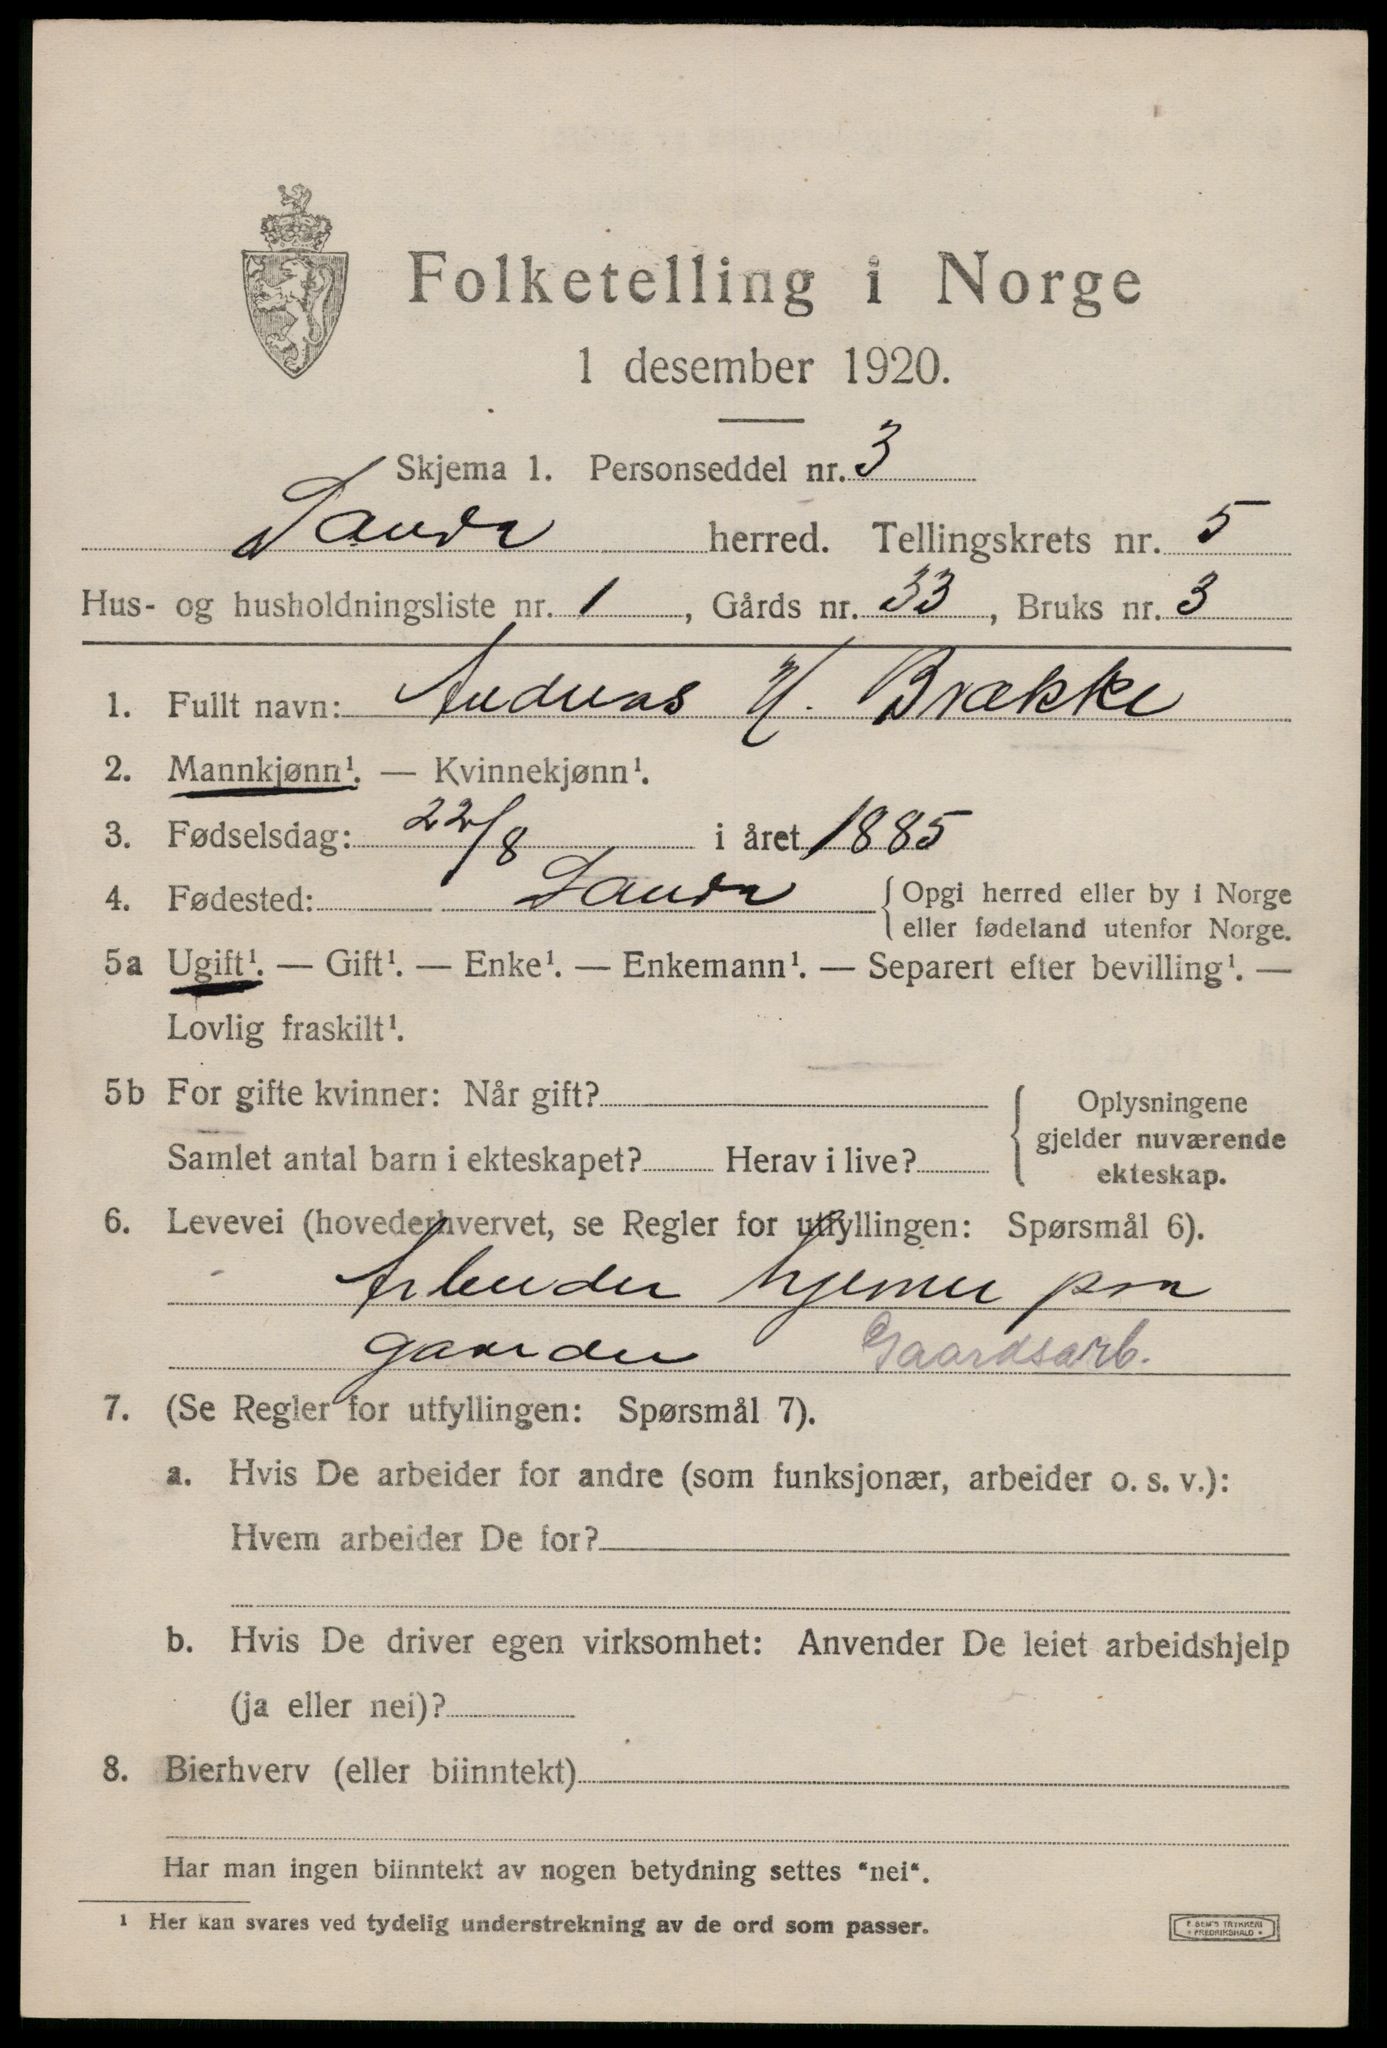 Folketelling i Norge
1 desember 1920.
Skjema 1. Personseddel nr. 3
Sauda herred. Tellingskrets nr. 5
Hus- og husholdningsliste nr. 1, Gårds nr. 33, Bruks nr. 3
1. Fullt navn: Andreas N. Brække
2. Mannkjønn¹. — Kvinnekjønn¹.
3. Fødselsdag: 22/8 i året 1885
4. Fødested: Sauda { Opgi herred eller by i Norge
eller fødeland utenfor Norge.
5a Ugift¹. — Gift¹. — Enke¹. — Enkemann¹. — Separert efter bevilling¹. —
Lovlig fraskilt¹.
5b For gifte kvinner: Når gift?
Samlet antal barn i ekteskapet? Herav i live?
Oplysningene
gjelder nuværende
ekteskap.
6. Levevei (hovederhvervet, se Regler for utfyllingen: Spørsmål 6).
Arbeider hjeme paa
gaarden Gaardsarb.
7. (Se Regler for utfyllingen: Spørsmål 7).
a. Hvis De arbeider for andre (som funksjonær, arbeider o. s. v.):
Hvem arbeider De for?
b. Hvis De driver egen virksomhet: Anvender De leiet arbeidshjelp
(ja eller nei)?
8. Bierhverv (eller biinntekt)
Har man ingen biinntekt av nogen betydning settes "nei".
¹ Her kan svares ved tydelig understrekning av de ord som passer.
TRYKKERI
FREDRIKSHALD